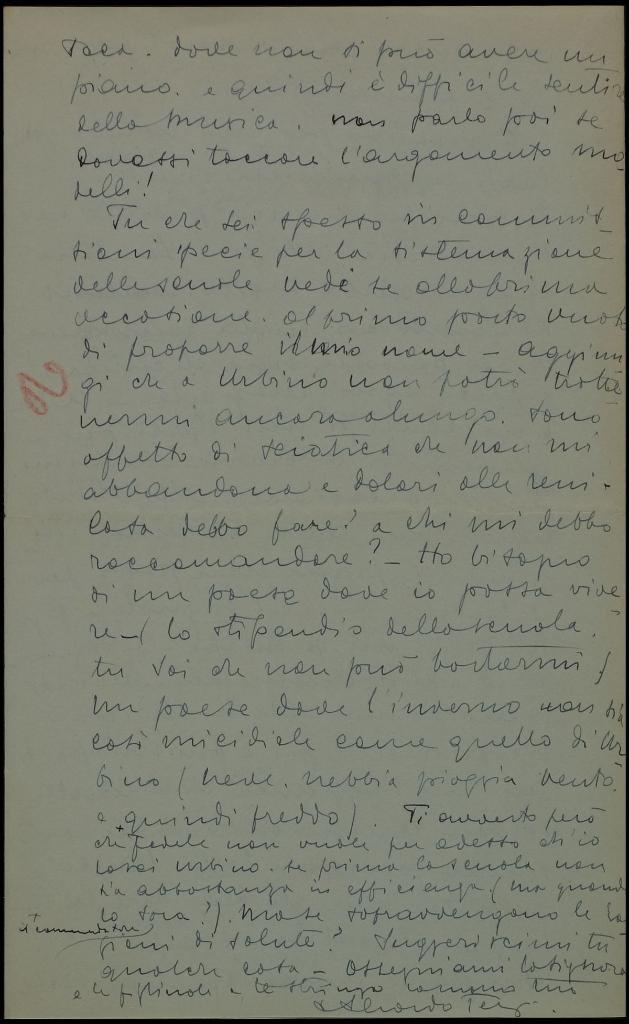 tocca. dove non si può avere un
piano. e quindi è difficile sentire
della musica. non parlo poi se
dovessi toccare l'argomento mo-
delli!
Tu che sei spesso in commis-
sioni specie per la sistemazione
delle scuole vedi se alla prima
occasione. al primo posto vuoto
di proporre il mio nome - aggiun
gi che a Urbino non potrò tratte
nermi ancora a lungo. sono
affetto di sciatica che non mi
abbandona e dolori alle reni.
Cosa debbo fare? a chi mi debbo
raccomandare? - Ho bisogno
di un paese dove io possa vive
re - (lo stipendio della scuola.
tu sai che non può bastarmi)
un paese dove l'inverno non sia
così micidiale come quello di Ur
bino (neve. nebbia pioggia vento.
e quindi freddo). Ti avverto però
che Fedele non vuole per adesso ch'io
lasci Urbino. se prima la scuola non
sia abbastanza in efficienza (ma quando
lo sarà?). Ma se sopravvengono le ra
gioni di salute? Suggeriscimi tu
qualche cosa - Ossequiami la signora
e le figliuole e te stringo la mano tuo